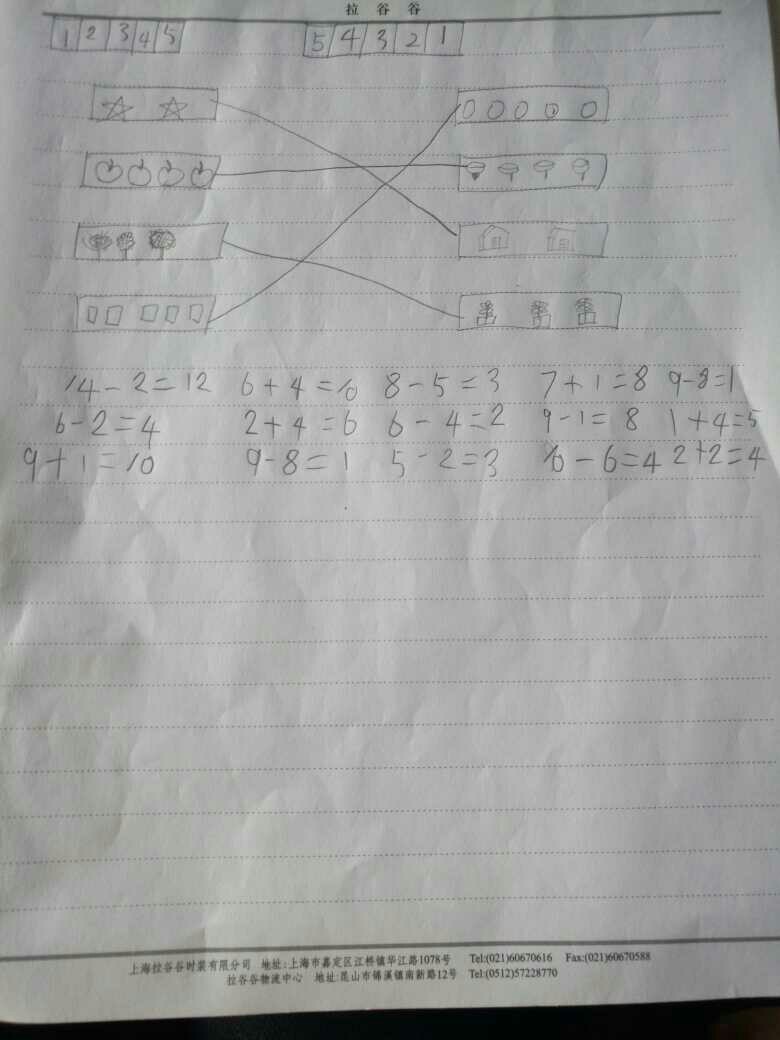 拉谷谷
1 2 3 4 5 5 4 3 2 1
14-2=12 6+4=10 8-5=3 7+1=8 9-8=1
6-2=4 2+4=6 6-4=2 9-1=8 1+4=5
9+1=10 9-8=1 5-2=3 10-6=4 2+2=4
上海拉谷谷时装有限公司 地址:上海市嘉定区江桥镇华江路1078号 Tel:(021)60670616 Fax:(021)60670588
拉谷谷物流中心 地址:昆山市锦溪镇南新路12号 Tel:(0512)57228770